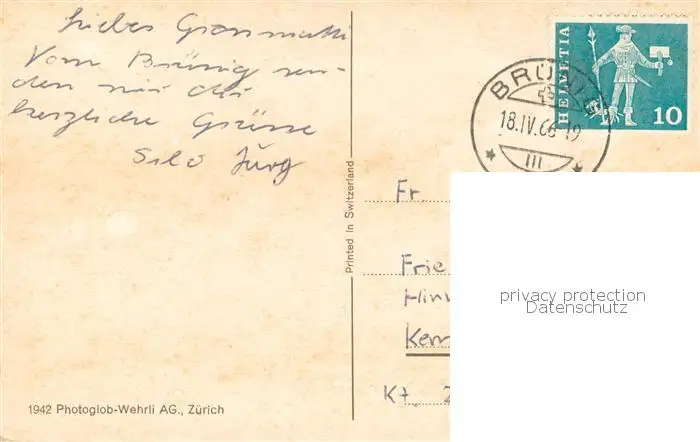 Liebes Grosmutti
Vom Brünig sen-
den wir dir
herzliche Grüsse
Jürg
HELVETIA
10
BRÜNIG
18.IV.66-19
III
Printed in Switzerland
Fr.
Frie
Hinw
Kem
Kt.
privacy protection
Datenschutz
1942 Photoglob-Wehrli AG., Zürich